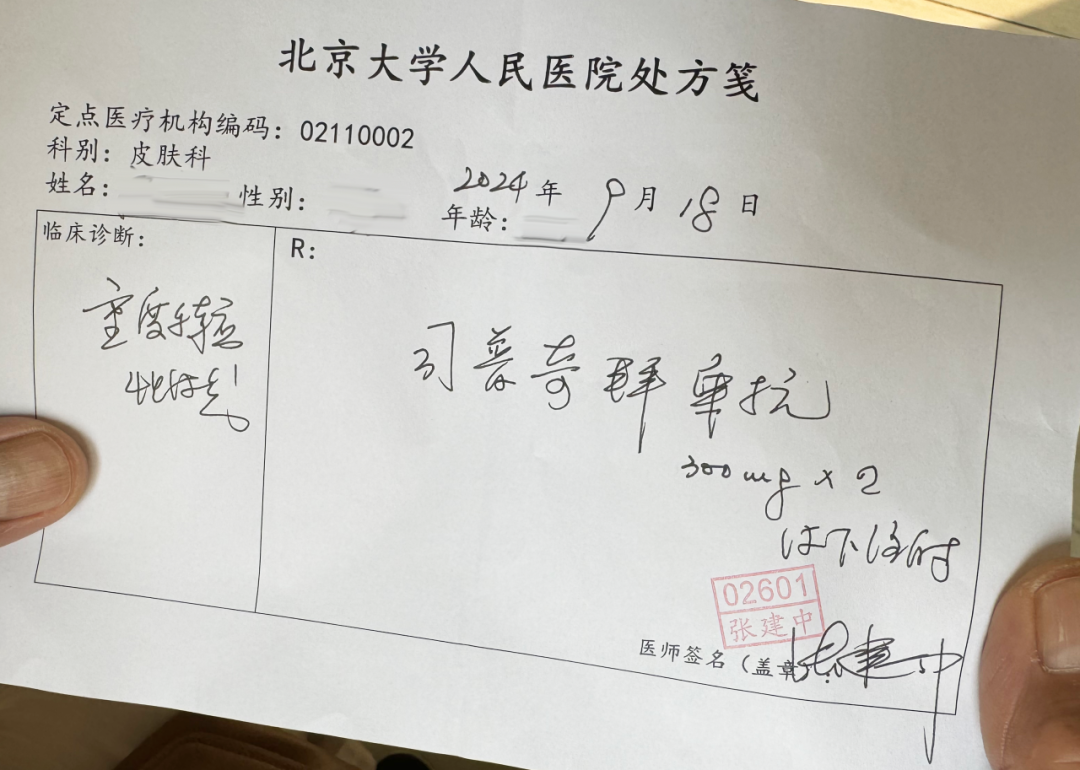 北京大学人民医院处方笺
定点医疗机构编码：02110002
科别：皮肤科
姓名： 性别： 年龄： 2024年9月18日
临床诊断：
重度特应
性皮炎
R：
司普奇拜单抗
300mg×2
皮下注射
02601
张建中
医师签名（盖章）：张建中